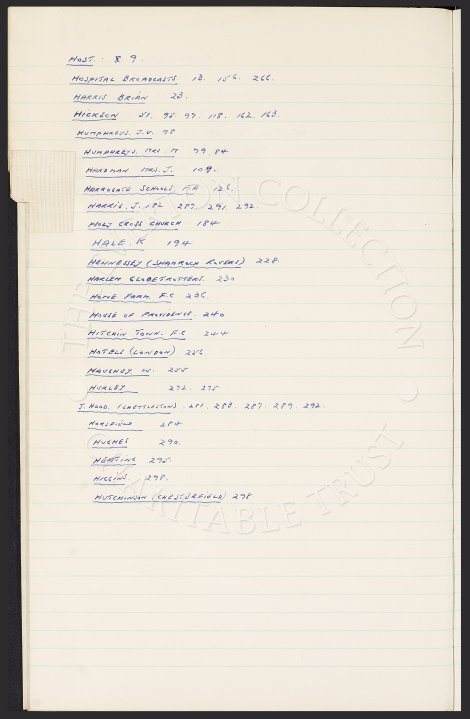 HOST. : 8 9.
HOSPITAL BROADCASTS 13. 156. 266.
HARRIS BRIAN 23.
HICKSON 51. 95 97. 118. 162. 163.
HUMPHREYS. J.V. 78
HUMPHREYS. MRS. M 79. 84
HARDMAN MRS. J. 109.
HARROGATE SCHOOLS F.A 126.
HARRIS. J. 182 287. 291. 292.
HOLY CROSS CHURCH 184
HALE. K 194
HENNESSEY (SHAMROCK ROVERS) 228.
HARLEM GLOBETROTTERS. 230
HOME FARM. F.C 236
HOUSE OF PROVIDENCE. 240
HITCHIN TOWN. F.C 244
HOTELS (LONDON) 256.
HAUGHEY W. 258
HURLEY 272. 275
J. HOOD. 281. 283. 287. 289. 292.
HORSFIELD 284
HUGHES 290.
HEATING 295.
HIGGINS. 298.
HUTCHINSON (CHESTERFIELD) 298
COLLECTION
CHARITABLE TRUST